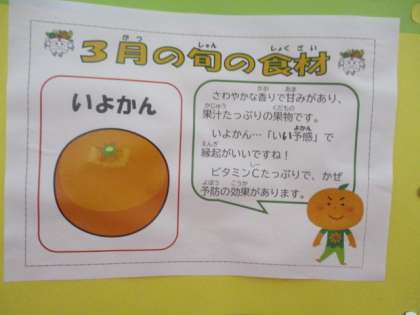 3月の旬の食材
いよかん
さわやかな香りで甘みがあり、
果汁たっぷりの果物です。
いよかん…「いい予感」で
縁起がいいですね！
ビタミンCたっぷりで、かぜ
予防の効果があります。